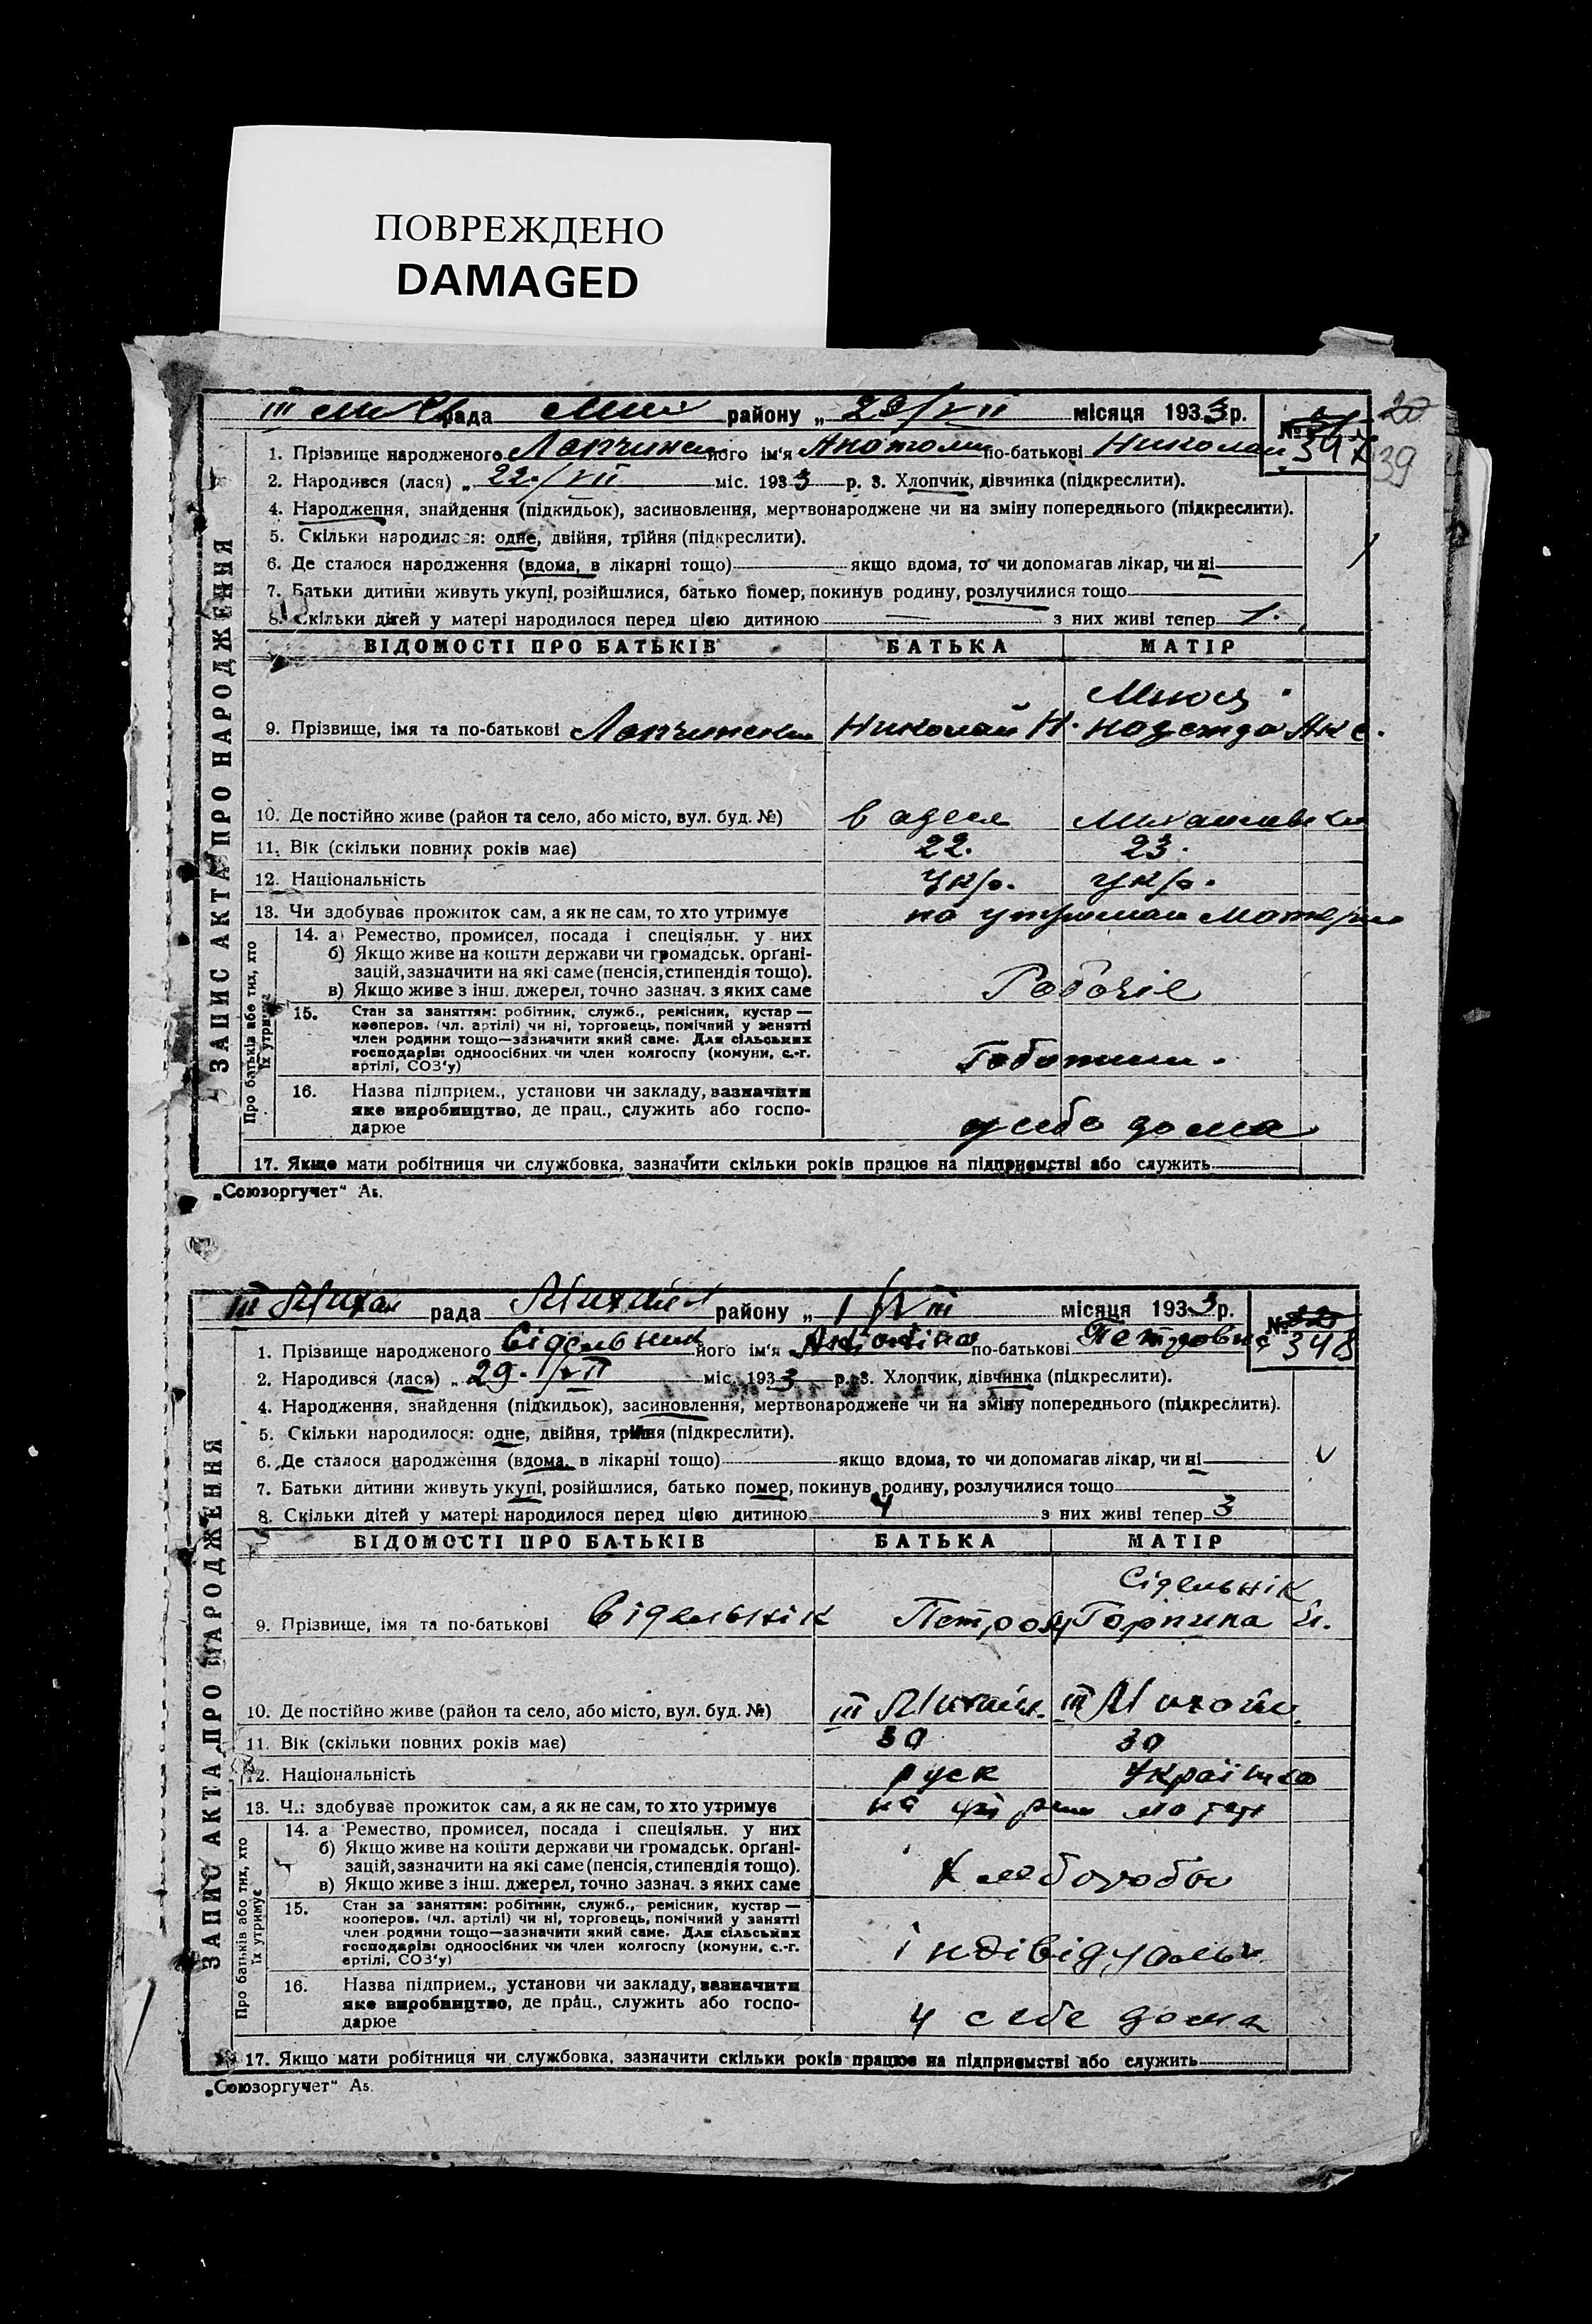 ПОВРЕЖДЕНО
DAMAGED
III рада району „ 29/VII місяця 1933 р.
20
№ 347
39
1. Прізвище народженого його ім'я Анатоли по-батькові Николаи
2. Народився (лася) „ 22./VII міс. 1933 р. 3. Хлопчик, дівчинка (підкреслити).
4. Народження, знайдення (підкидьок), засиновлення, мертвонароджене чи на зміну попереднього (підкреслити).
5. Скільки народилося: одне, двійня, трійня (підкреслити).
6. Де сталося народження (вдома, в лікарні тощо) якщо вдома, то чи допомагав лікар, чи ні
7. Батьки дитини живуть укупі, розійшлися, батько помер, покинув родину, розлучилися тощо
8. Скільки дітей у матері народилося перед цією дитиною — з них живі тепер 1.
ЗАПИС АКТА ПРО НАРОДЖЕННЯ
ВІДОМОСТІ ПРО БАТЬКІВ БАТЬКА МАТІР
9. Прізвище, імя та по-батькові Николай Н. Надежда
10. Де постійно живе (район та село, або місто, вул. буд. №)
11. Вік (скільки повних років має) 22. 23.
12. Національність Укр. укр.
13. Чи здобуває прожиток сам, а як не сам, то хто утримує на
Про батьків або тих, хто їх утримує
14. а) Ремество, промисел, посада і спеціяльн. у них
б) Якщо живе на кошти держави чи громадськ. органі-
зацій, зазначити на які саме (пенсія, стипендія тощо).
в) Якщо живе з інш. джерел, точно зазнач. з яких саме
15. Стан за заняттям: робітник, служб., ремісник, кустар —
кооперов. (чл. артілі) чи ні, торговець, помічний у занятті
член родини тощо—зазначити який саме. Для сільських
господарів: одноосібних чи член колгоспу (комуни, с.-г.
артілі, СОЗ'у)
16. Назва підприєм., установи чи закладу, зазначити
яке виробництво, де прац., служить або госпо-
дарює
у себе дома
17. Якщо мати робітниця чи службовка, зазначити скільки років працює на підприємстві або служить
„Союзоргучет“ А5.
III Михай рада Михайл району „ 1/VIII місяця 1933 р.
№ 348
1. Прізвище народженого Сідельник його ім'я Антоніна по-батькові Петровна
2. Народився (лася) „ 29./VII міс. 1933 р. 3. Хлопчик, дівчинка (підкреслити).
4. Народження, знайдення (підкидьок), засиновлення, мертвонароджене чи на зміну попереднього (підкреслити).
5. Скільки народилося: одне, двійня, трійня (підкреслити).
6. Де сталося народження (вдома, в лікарні тощо) якщо вдома, то чи допомагав лікар, чи ні
7. Батьки дитини живуть укупі, розійшлися, батько помер, покинув родину, розлучилися тощо
8. Скільки дітей у матері народилося перед цією дитиною 4 з них живі тепер 3
ЗАПИС АКТА ПРО НАРОДЖЕННЯ
ВІДОМОСТІ ПРО БАТЬКІВ БАТЬКА МАТІР
Сідельнік
9. Прізвище, імя та по-батькові Сідельнік Петро Горпина
10. Де постійно живе (район та село, або місто, вул. буд. №) III Михайл. III Михайл.
11. Вік (скільки повних років має) 30 30
12. Національність руск Українка
13. Чи здобуває прожиток сам, а як не сам, то хто утримує на
Про батьків або тих, хто їх утримує
14. а Ремество, промисел, посада і спеціяльн. у них
б) Якщо живе на кошти держави чи громадськ. органі-
зацій, зазначити на які саме (пенсія, стипендія тощо).
в) Якщо живе з інш. джерел, точно зазнач. з яких саме
15. Стан за заняттям: робітник, служб., ремісник, кустар —
кооперов. (чл. артілі) чи ні, торговець, помічний у занятті
член родини тощо—зазначити який саме. Для сільських
господарів: одноосібних чи член колгоспу (комуни, с.-г.
артілі, СОЗ'у)
індівідуальн
16. Назва підприєм., установи чи закладу, зазначити
яке виробництво, де прац., служить або госпо-
дарює
у себе дома
17. Якщо мати робітниця чи службовка, зазначити скільки років працює на підприємстві або служить
„Союзоргучет“ А5.